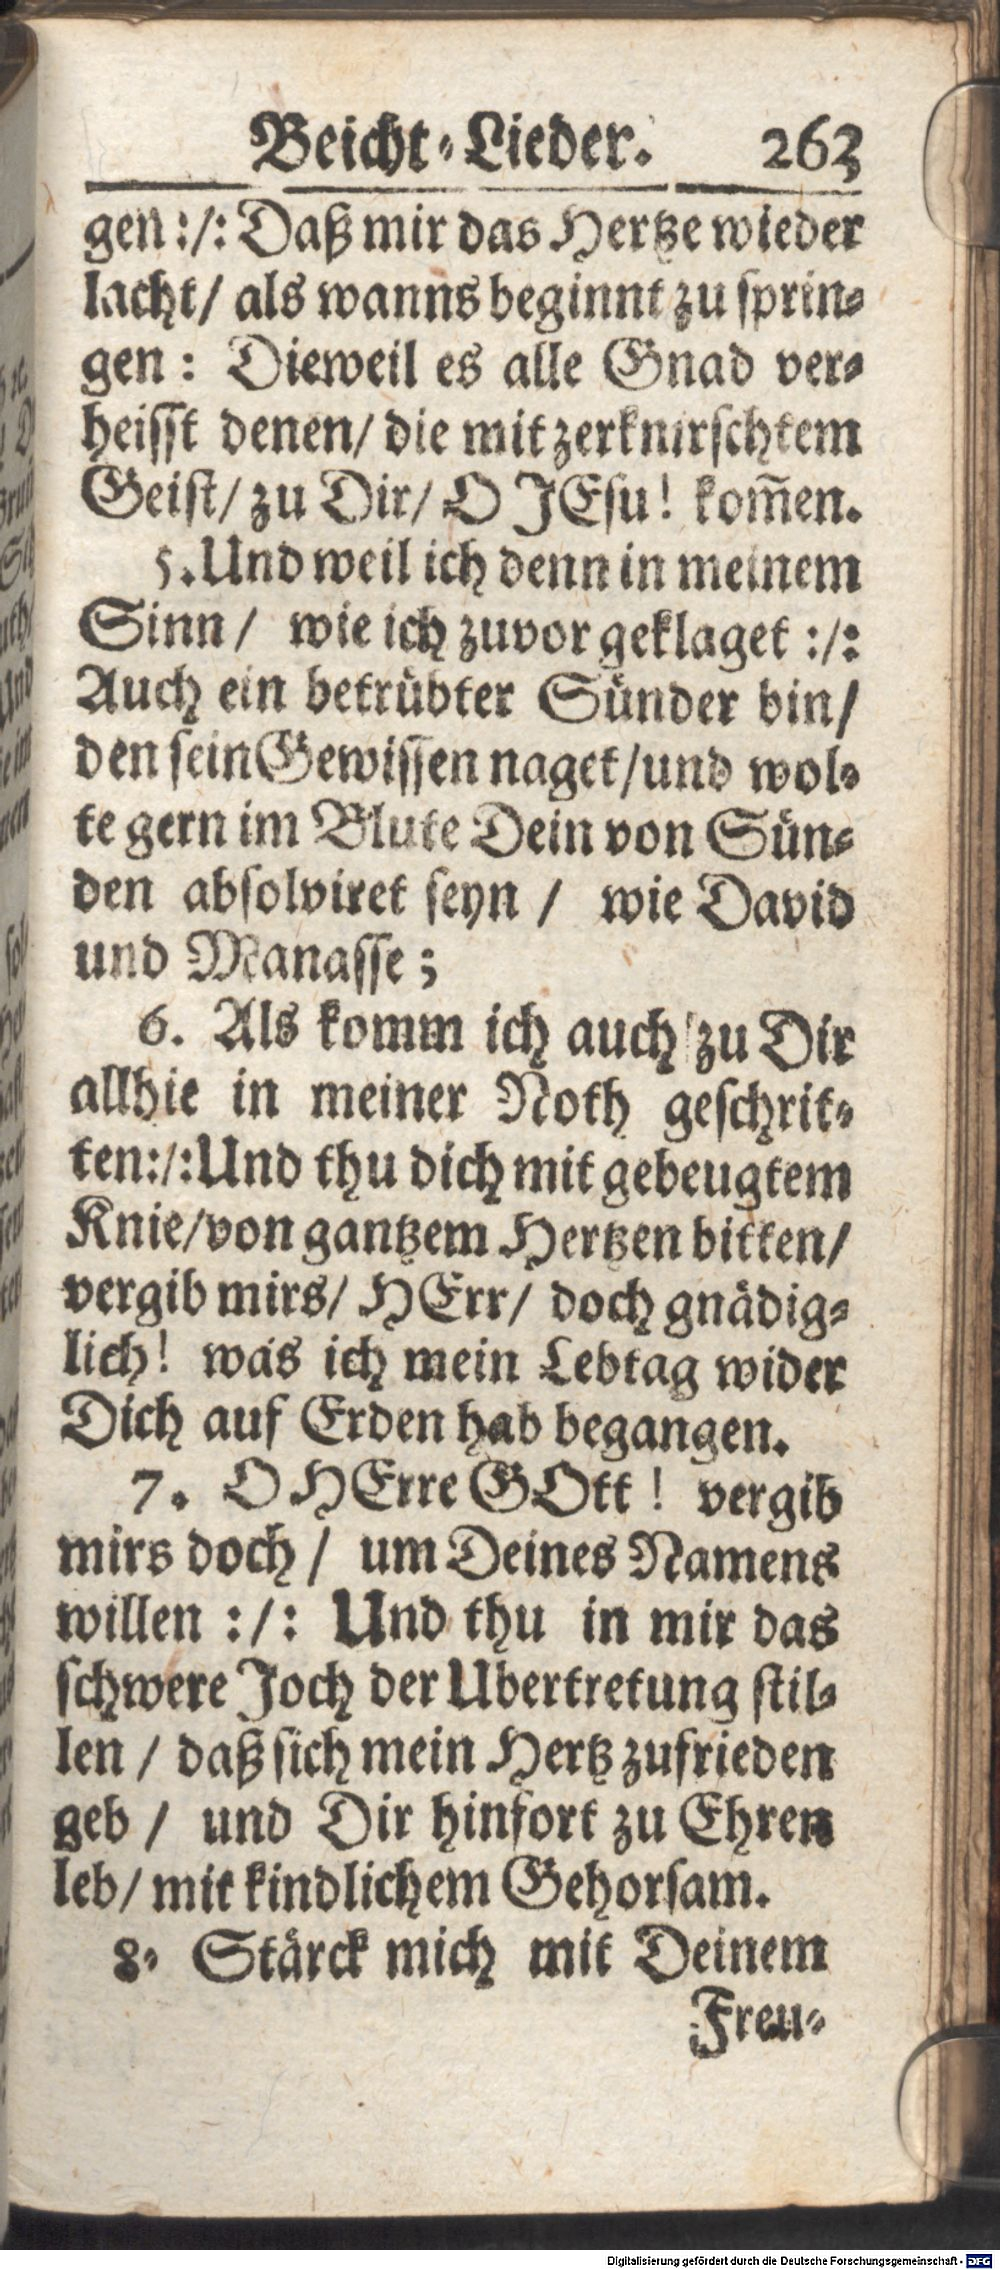 Beicht-Lieder. 263
gen :/: Daß mir das Hertze wieder
lacht/ als wanns beginnt zu sprin-
gen : Dieweil es alle Gnad ver-
heisst denen/ die mit zerknirschtem
Geist/ zu Dir/ O JEsu! kom̃en.
5. Und weil ich denn in meinem
Sinn / wie ich zuvor geklaget :/:
Auch ein betrübter Sünder bin/
den sein Gewissen naget/und wol-
te gern im Blute Dein von Sün-
den absolviret seyn / wie David
und Manasse ;
6. Als komm ich auch zu Dir
allhie in meiner Noth geschrit-
ten:/: Und thu dich mit gebeugtem
Knie/von gantzem Hertzen bitten/
vergib mirs/ HErr/ doch gnädig-
lich! was ich mein Lebtag wider
Dich auf Erden hab begangen.
7. O HErre GOtt ! vergib
mirs doch / um Deines Namens
willen :/: Und thu in mir das
schwere Joch der Ubertretung stil-
len / daß sich mein Hertz zufrieden
geb / und Dir hinfort zu Ehren
leb/ mit kindlichem Gehorsam.
8. Stärck mich mit Deinem
Freu-
Digitalisierung gefördert durch die Deutsche Forschungsgemeinschaft - DFG